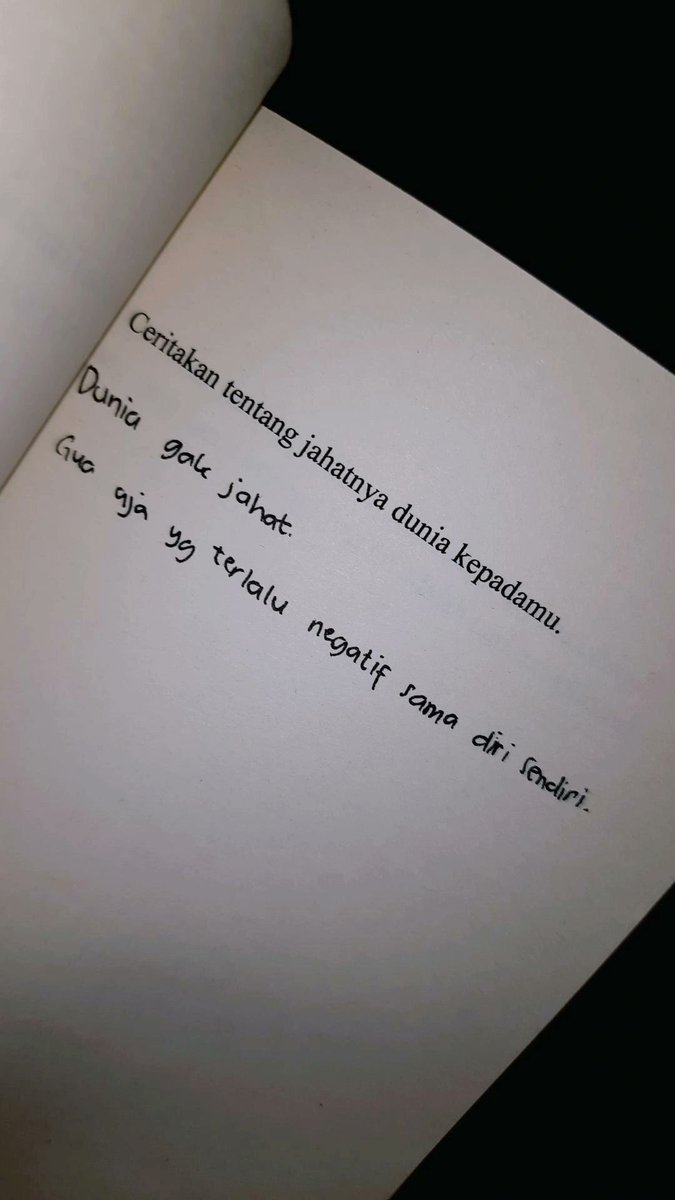 Ceritakan tentang jahatnya dunia kepadamu.
Dunia gak jahat.
Gua aja yg terlalu negatif sama diri sendiri.